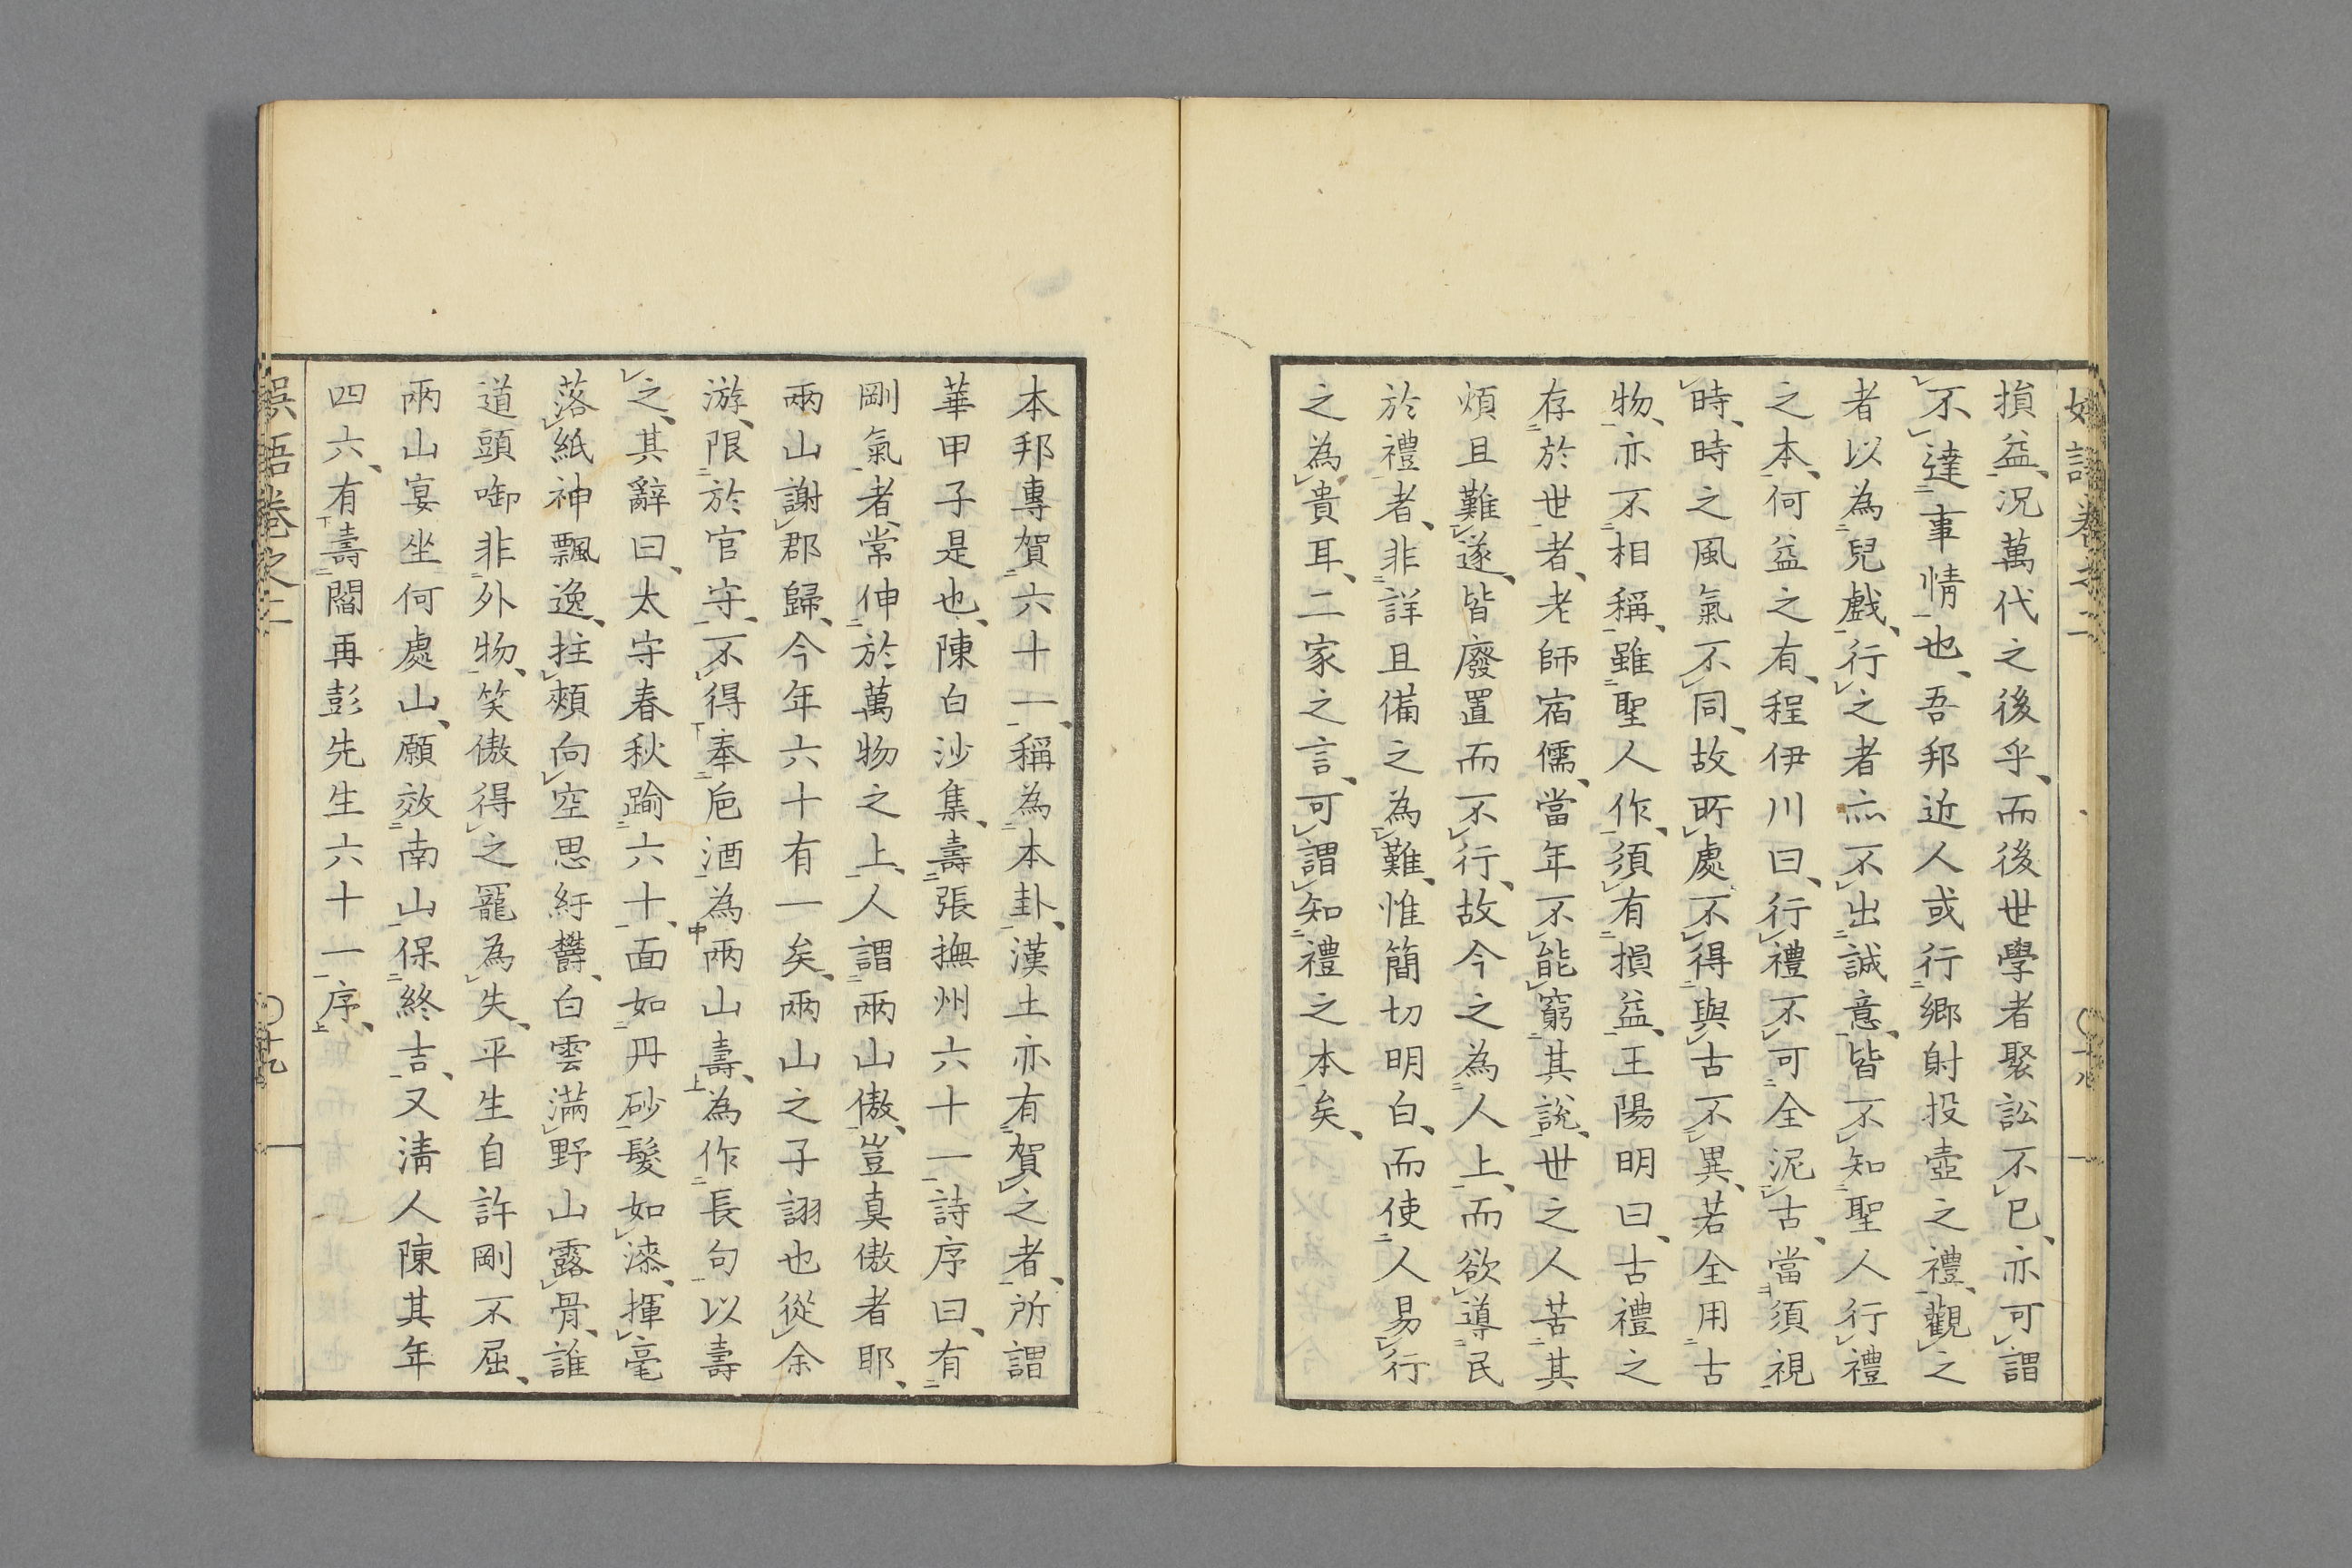 損益、况萬代之後乎、而後世學者聚訟不已、亦可謂
不達事情也、吾邦近人或行鄉射投壺之禮、觀之
者以為兒戲、行之者亦不出誠意、皆不知聖人行禮
之本、何益之有、程伊川曰、行禮不可全泥古、當須視
時、時之風氣不同、故所處不得與古不異、若全用古
物、亦不相稱、雖聖人作、須有損益、王陽明曰、古禮之
存於世者、老師宿儒、當年不能窮其說、世之人苦其
煩且難、遂皆廢置而不行、故今之為人上、而欲導民
於禮者、非詳且備之為難、惟簡切明白、而使人易行
之為貴耳、二家之言、可謂知禮之本矣、
本邦專賀六十一、稱為本卦、漢土亦有賀之者、所謂
華甲子是也、陳白沙集、壽張撫州六十一詩序曰、有
剛氣者、常伸於萬物之上、人謂兩山傲、豈真傲者耶、
兩山謝郡歸、今年六十有一矣、兩山之子詡也從余
游、限於官守、不得奉卮酒為兩山壽、為作長句以壽
之、其辭曰、太守春秋踰六十、面如丹砂髮如漆、揮毫
落紙神飄逸、拄頰向空思紆欝、白雲滿野山露骨、誰
道頭啣非外物、笑傲得之寵為失、平生自許剛不屈、
兩山宴坐何處山、願效南山保終吉、又淸人陳其年
四六、有壽閻再彭先生六十一序、
誤語卷之二
〇十九